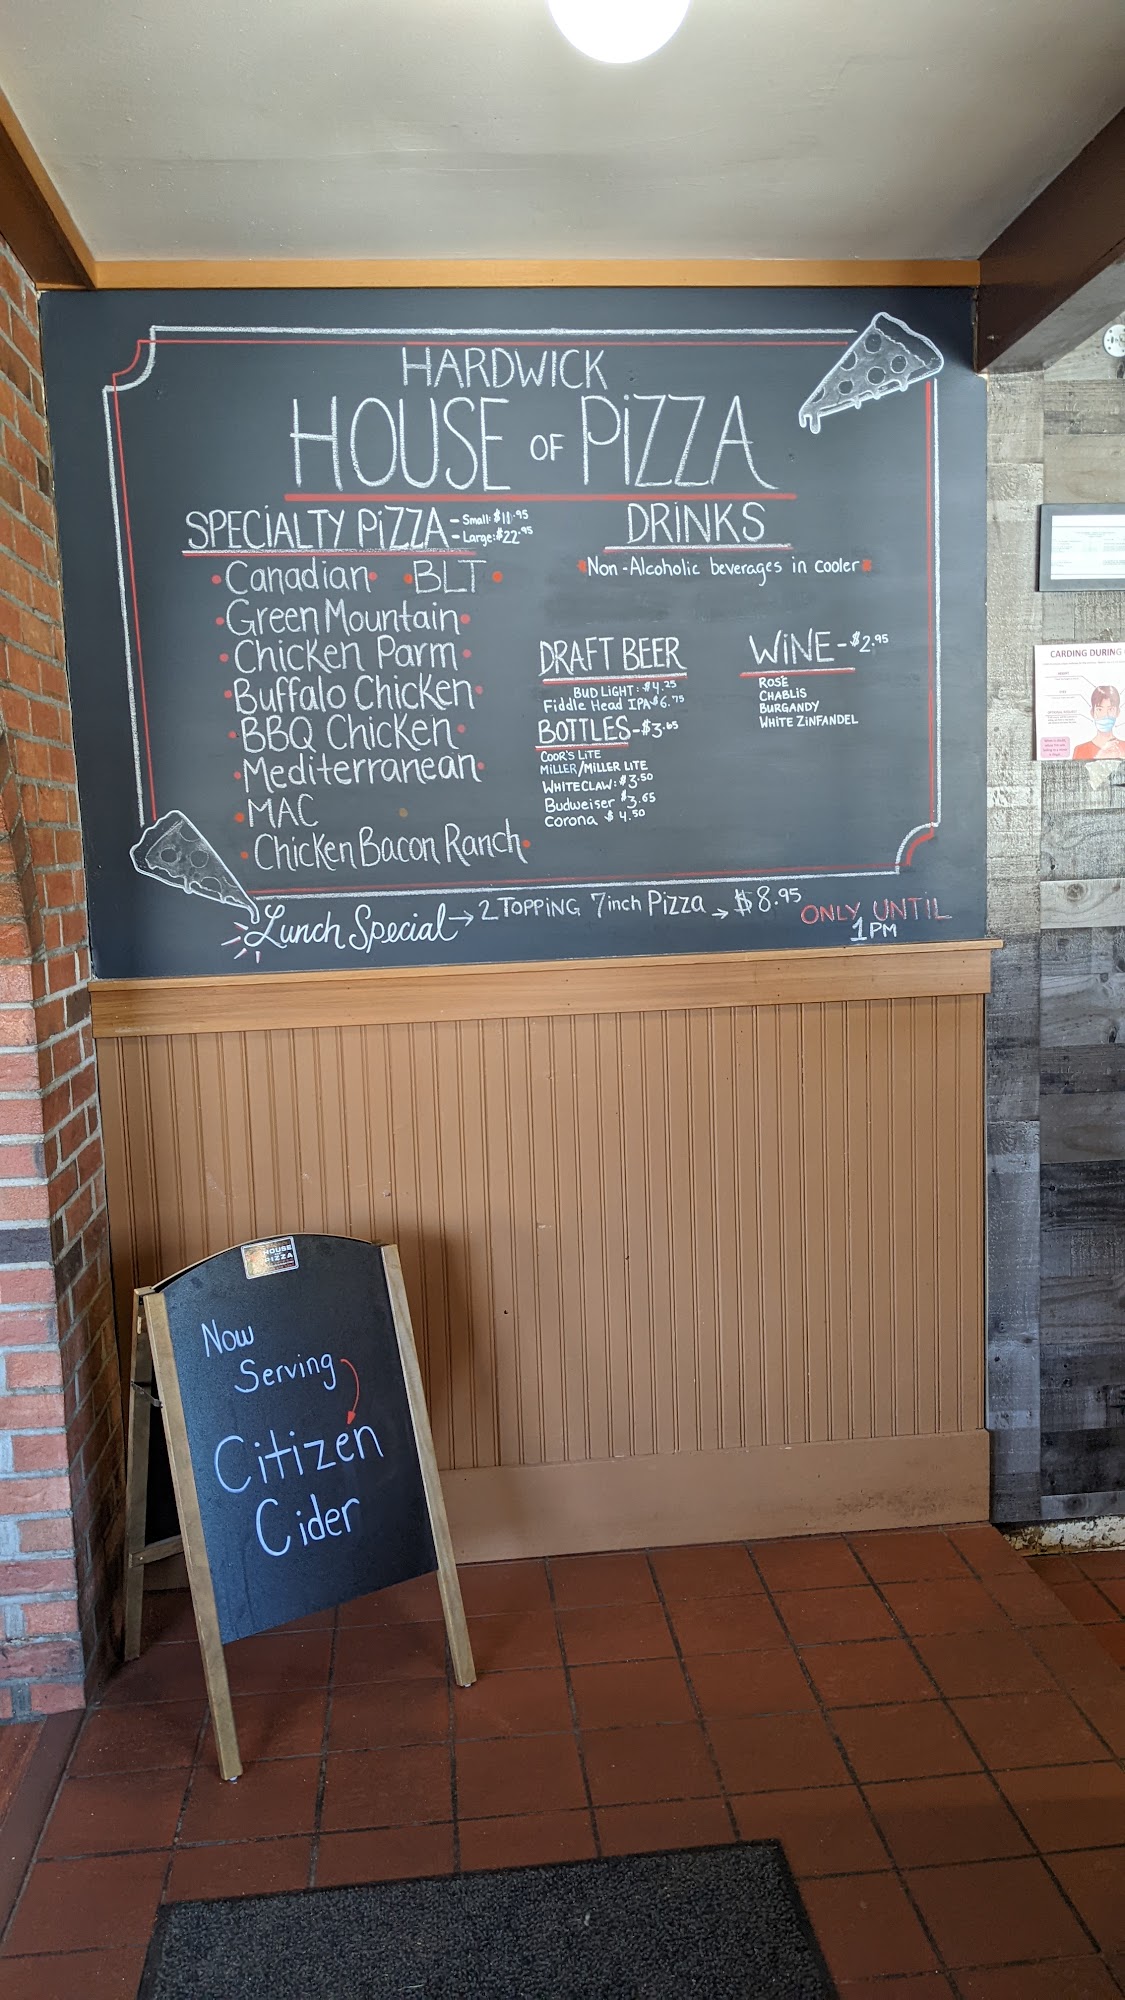 HARDWICK
HOUSE OF PiZZA
SPECiALTY PiZZA - Small: $11.95
- Large: $22.95
• Canadian • • BLT •
• Green Mountain •
• Chicken Parm •
• Buffalo Chicken •
• BBQ Chicken •
• Mediterranean •
• MAC
• Chicken Bacon Ranch •
DRiNKS
Non-Alcoholic beverages in cooler
DRAFT BEER
BUD LiGHT: $4.25
Fiddle Head IPA $6.75
BOTTLES - $3.65
COOR'S LiTE
MiLLER/MiLLER LiTE
WHITE CLAW: $3.50
Budweiser $3.65
Corona $4.50
WiNE - $2.95
ROSÉ
CHABLiS
BURGANDY
WHITE ZiNFANDEL
Lunch Special → 2 TOPPiNG 7inch Pizza → $8.95
ONLY UNTIL
1PM
HOUSE
PIZZA
Now
Serving
Citizen
Cider
CARDING DURING